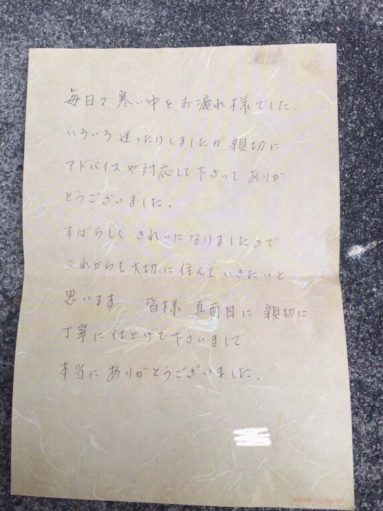 毎日々寒い中をお疲れ様でした
いろいろ迷ったりしましたが親切に
アドバイスや対応して下さって ありが
とうございました。
すばらしく きれいになりましたので
これからも大切に住んでいきたいと
思います 皆様 真面目に 親切に
丁寧に仕上げて下さいまして
本当に ありがとうございました。